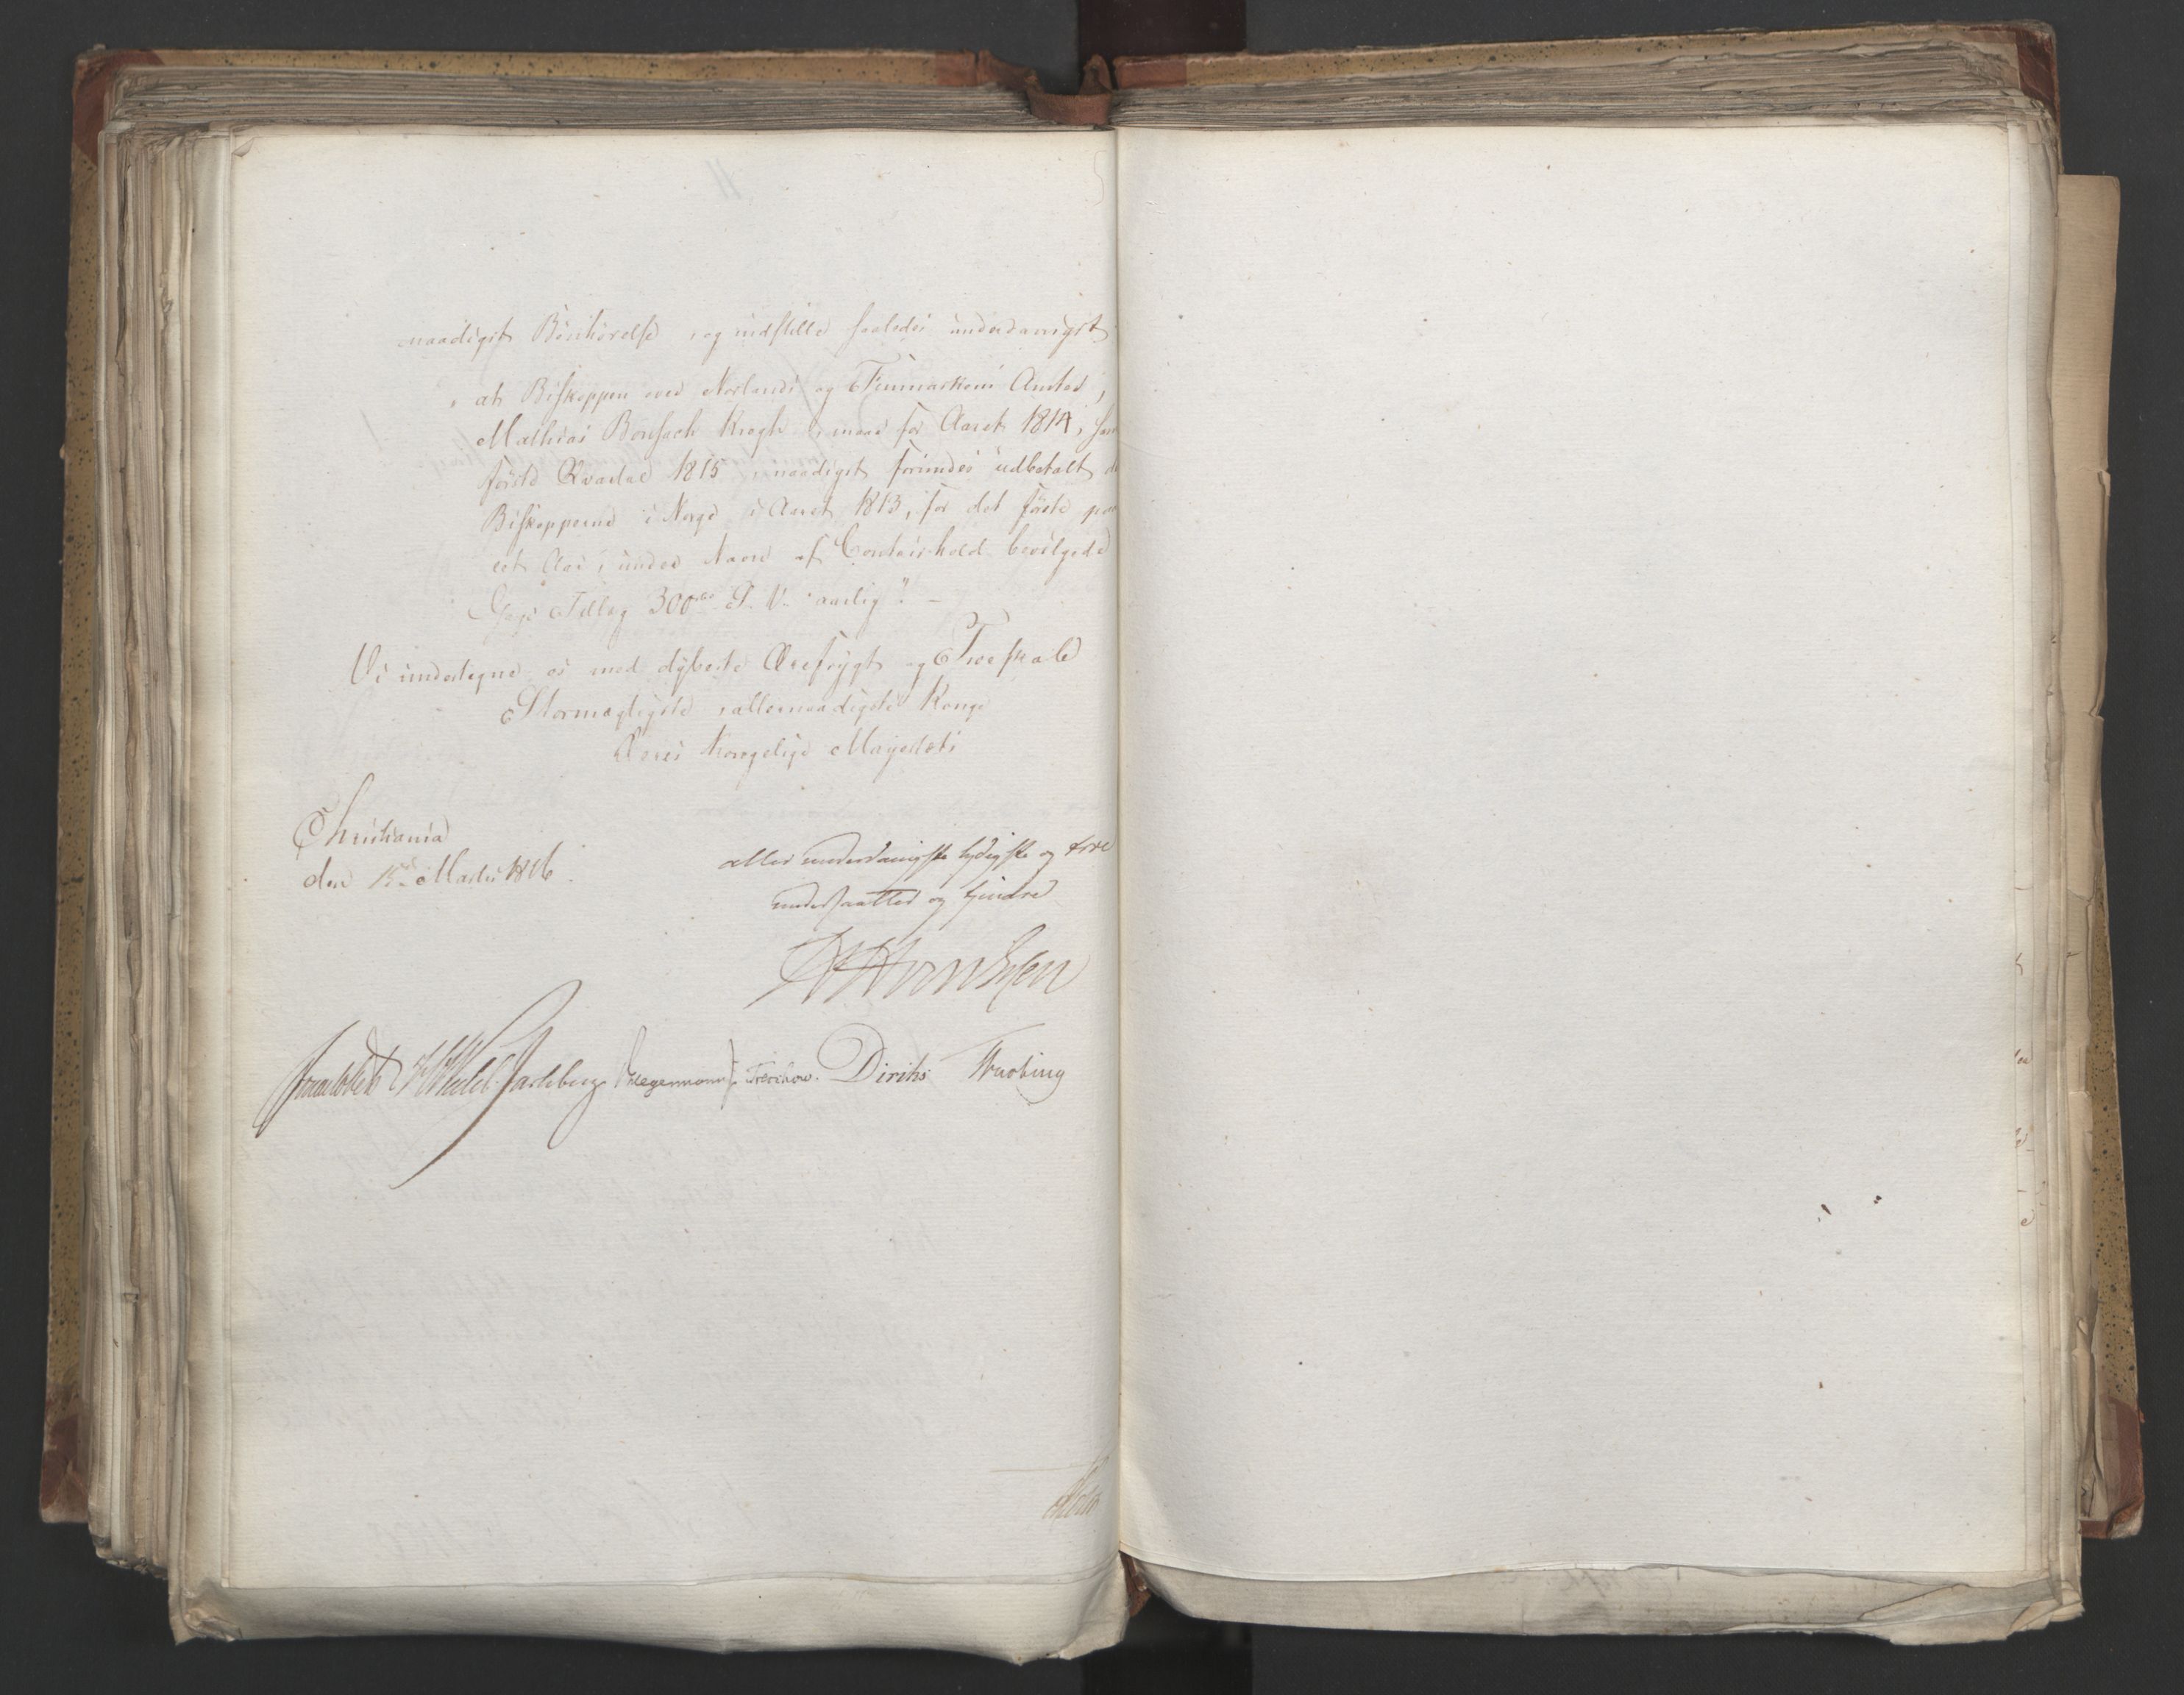 naadigst Bönhörelse, og indstille saaledes underdanigst
" at Biskoppen over Norlands og Finmarkens Amter,
Mathias Bonsach Krogh, maae for Aaret 1814, samt
förste Qvartal 1815, naadigst forundes udbetalt
Biskopperne i Norge i Aaret 1813, for det förste paa
eet Aar, under Navn af Contoirhold bevilgede
Gage Tillæg 300 rbd. S. V. aarlig". -
Vi undertegne os med dybeste Ærefrygt og Troeskab
Stormægtigste, allernaadigste Konge
Deres Kongelige Majestæts
Christiania
den 15de Marts 1816.
aller underdanigste lydigste og troe
undersaatter og tjenere
Sommerhielm Wedel Jarlsberg Hegermann Treschow. Diriks